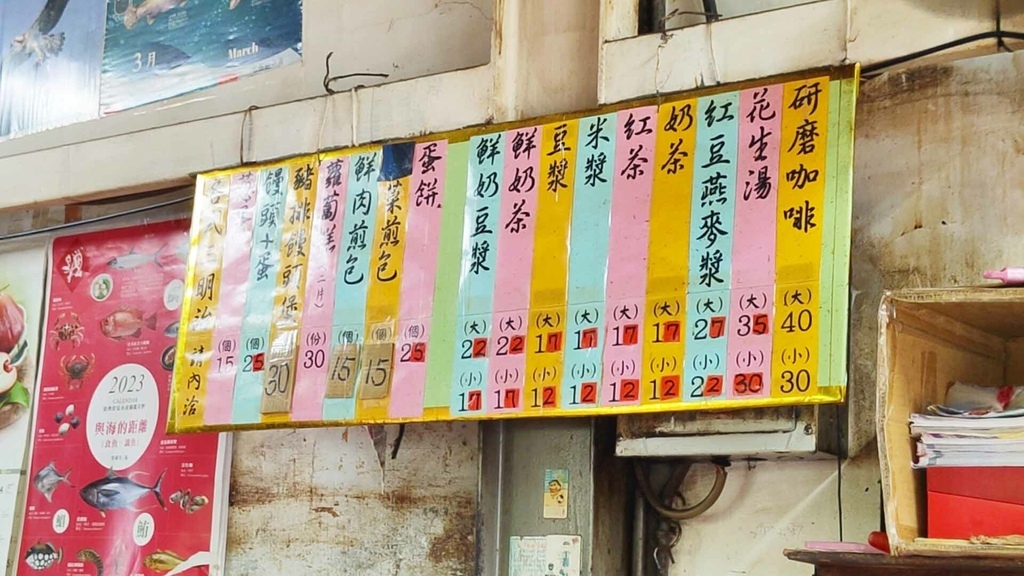 研磨咖啡 (大) 40 (小) 30
花生湯 (大) 35 (小) 30
紅豆燕麥漿 (大) 27 (小) 22
奶茶 (大) 17 (小) 12
紅茶 (大) 17 (小) 12
米漿 (大) 17 (小) 12
豆漿 (大) 17 (小) 12
鮮奶茶 (大) 22 (小) 17
鮮奶豆漿 (大) 22 (小) 17
蛋餅 (個) 25
菜煎包 15
鮮肉煎包 (個) 15
蘿蔔糕 (份) 30
豬排饅頭堡 30
饅頭+蛋 (個) 25
(個) 15
三明治 請內洽
3月
March
2023
CALENDAR
與海的距離
鮪